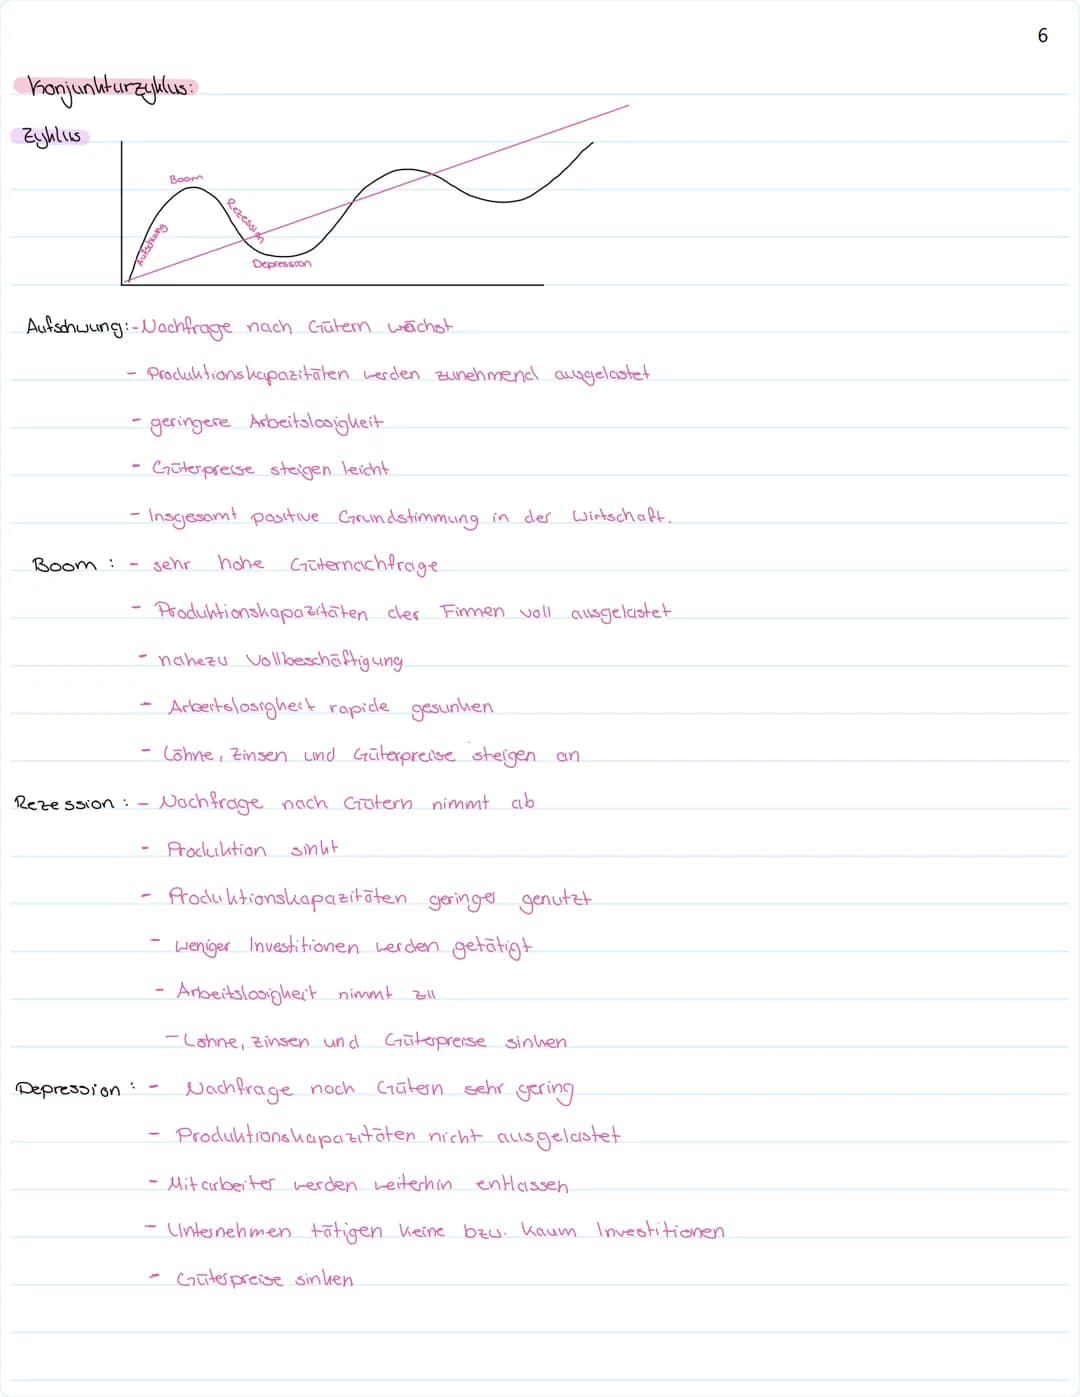 6
Konjunkturzyklus:
Zyklus
Boom
Rezession
Aufschwung
Depression
Aufschwung: - Nachfrage nach Gütern wächst
- Produktionskapazitäten werden zunehmend ausgelastet
- geringere Arbeitslosigkeit
- Güterpreise steigen leicht
- Insgesamt positive Grundstimmung in der Wirtschaft.
Boom : - sehr hohe Güternachfrage
- Produktionskapazitäten der Firmen voll ausgelastet
- nahezu Vollbeschäftigung
- Arbeitslosigkeit rapide gesunken
- Löhne, Zinsen und Güterpreise steigen an
Rezession : - Nachfrage nach Gütern nimmt ab
- Produktion sinkt
- Produktionskapazitäten geringer genutzt
- weniger Investitionen werden getätigt
- Arbeitslosigkeit nimmt zu
- Löhne, Zinsen und Güterpreise sinken
Depression : - Nachfrage nach Gütern sehr gering
- Produktionskapazitäten nicht ausgelastet
- Mitarbeiter werden weiterhin entlassen
- Unternehmen tätigen keine bzw. kaum Investitionen
- Güterpreise sinken